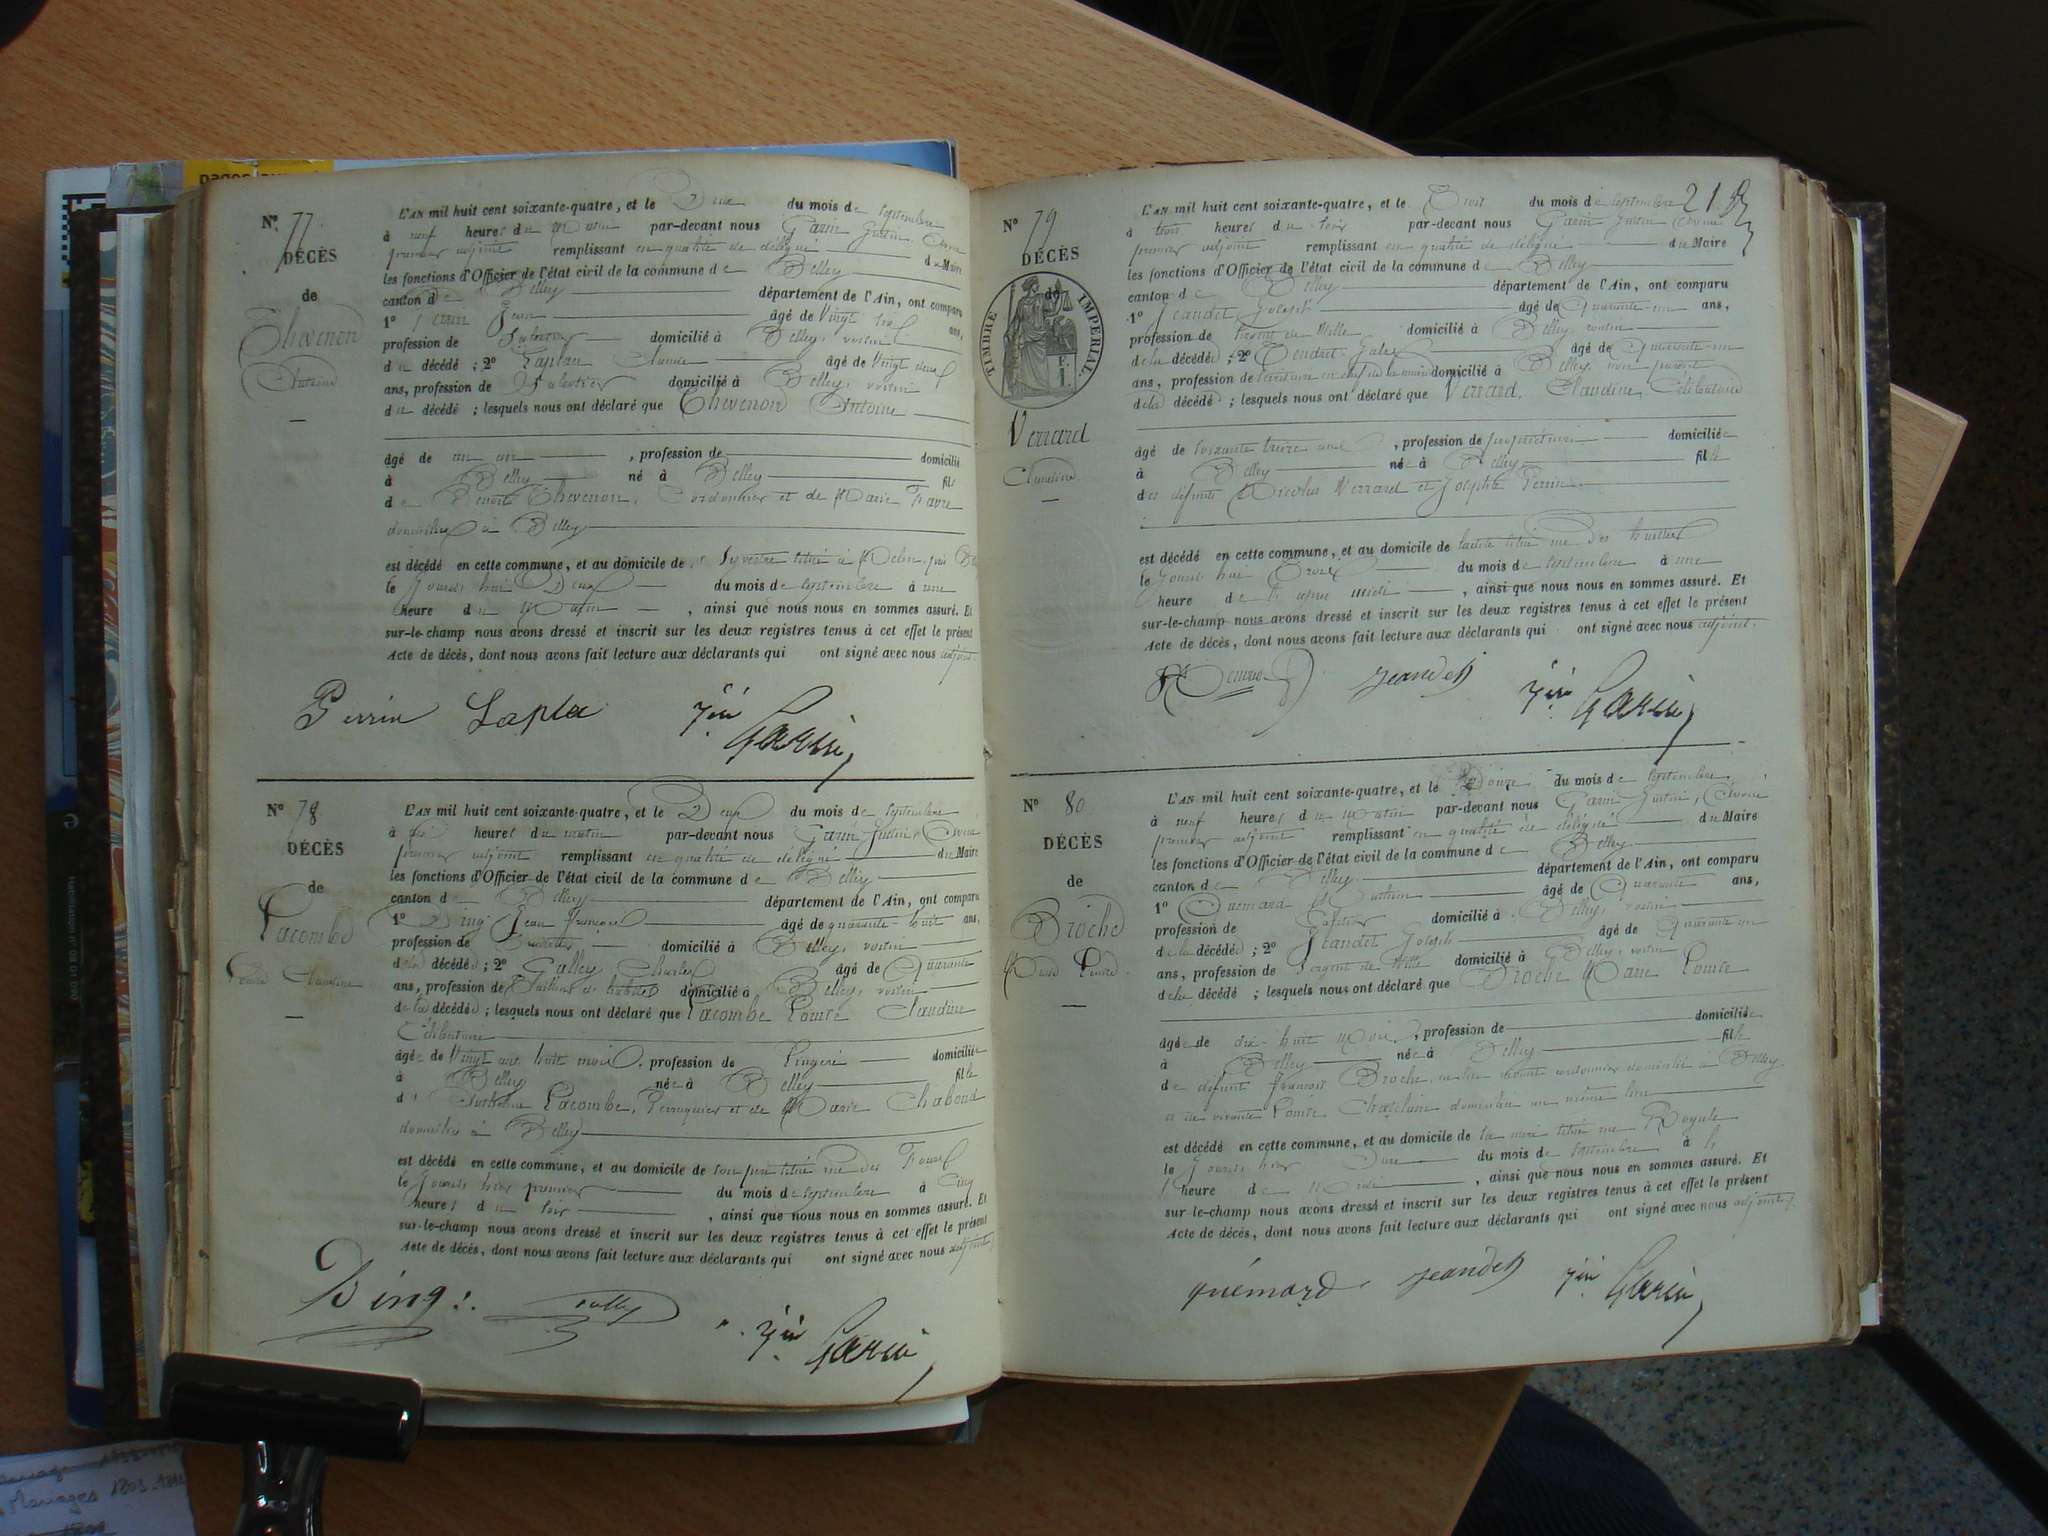 N° 77
DÉCÈS
de
Thevenon
Antoine
L'AN mil huit cent soixante-quatre, et le Deux du mois de septembre
à neuf heures du matin par-devant nous Garin Justin
premier adjoint remplissant en qualité de délégué du Maire
les fonctions d'Officier de l'état civil de la commune de Belley
canton de Belley département de l'Ain, ont comparu
1° Perrin Jean âgé de vingt ans,
profession de domicilié à Belley, voisin
du décédé ; 2° Laplan Claude âgé de vingt deux
ans, profession de domicilié à Belley, voisin
du décédé ; lesquels nous ont déclaré que Thevenon Antoine
âgé de un an , profession de domicilié
à Belley né à Belley fils
de Benoit Thevenon, Cordonnier et de Marie Favre
domiciliés à Belley
est décédé en cette commune, et au domicile de
le jourd'hui Deux du mois de septembre à une
heure du matin , ainsi que nous nous en sommes assuré. Et
sur-le-champ nous avons dressé et inscrit sur les deux registres tenus à cet effet le présent
Acte de décès, dont nous avons fait lecture aux déclarants qui ont signé avec nous adjoint.
Perrin Lapla Garin
N° 78
DÉCÈS
de
Lacombe
Louise Claudine
L'AN mil huit cent soixante-quatre, et le Deux du mois de septembre
à heures du matin par-devant nous Garin Justin
premier adjoint remplissant en qualité de délégué du Maire
les fonctions d'Officier de l'état civil de la commune de Belley
canton de Belley département de l'Ain, ont comparu
1° Bing Jean François âgé de quarante-huit ans,
profession de domicilié à Belley, voisin
de la décédée ; 2° Galley Charles âgé de Quarante
ans, profession de domicilié à Belley, voisin
de la décédée ; lesquels nous ont déclaré que Lacombe Louise Claudine
Célibataire
âgée de vingt ans huit mois, profession de Lingère domiciliée
à Belley née à Belley fille
d' Lacombe, Perruquier et de Marie Chaboud
domiciliés à Belley
est décédé en cette commune, et au domicile de son père situé rue des
le jourd'hier premier du mois de septembre à Cinq
heures du soir , ainsi que nous nous en sommes assuré. Et
sur-le-champ nous avons dressé et inscrit sur les deux registres tenus à cet effet le présent
Acte de décès, dont nous avons fait lecture aux déclarants qui ont signé avec nous adjoint.
Bing Garin
N° 79
DÉCÈS
de
TIMBRE IMPERIAL.
Verrard
Claudine
218
L'AN mil huit cent soixante-quatre, et le Trois du mois de septembre
à trois heures du soir par-devant nous Garin Justin
premier adjoint remplissant en qualité de délégué du Maire
les fonctions d'Officier de l'état civil de la commune de Belley
canton de Belley département de l'Ain, ont comparu
1° Jeandet Joseph âgé de Quarante-un ans,
profession de Sergent de Ville domicilié à Belley voisin
de la décédée ; 2° âgé de Quarante-un
ans, profession de domicilié à Belley, non parent
de la décédé ; lesquels nous ont déclaré que Verrard, Claudine, Célibataire
âgé de soixante treize ans , profession de propriétaire domiciliée
à Belley née à Belley fille
des défunts Nicolas Verrard et Josephte Perrin
est décédé en cette commune, et au domicile de
le jourd'hui Trois du mois de septembre à une
heure de après midi , ainsi que nous nous en sommes assuré. Et
sur-le-champ nous avons dressé et inscrit sur les deux registres tenus à cet effet le présent
Acte de décès, dont nous avons fait lecture aux déclarants qui ont signé avec nous adjoint.
Jeandet Garin
N° 80
DÉCÈS
de
Broche
Marie Louise
L'AN mil huit cent soixante-quatre, et le Douze du mois de septembre
à neuf heures du matin par-devant nous Garin Justin,
premier adjoint remplissant en qualité de délégué du Maire
les fonctions d'Officier de l'état civil de la commune de Belley
canton de Belley département de l'Ain, ont comparu
1° Quemard Mathurin âgé de Quarante ans,
profession de Cafetier domicilié à Belley, voisin
de la décédée ; 2° Jeandet Joseph âgé de Quarante un
ans, profession de Sergent de Ville domicilié à Belley, voisin
de la décédé ; lesquels nous ont déclaré que Broche Marie Louise
âgée de dix-huit mois, profession de domiciliée
à Belley née à Belley fille
de défunt François Broche, cordonnier domicilié à Belley
et de vivante Louise Chatelain domiciliée au même lieu
est décédé en cette commune, et au domicile de sa mère situé rue Royale
le jourd'hier Onze du mois de septembre à
heure de midi , ainsi que nous nous en sommes assuré. Et
sur-le-champ nous avons dressé et inscrit sur les deux registres tenus à cet effet le présent
Acte de décès, dont nous avons fait lecture aux déclarants qui ont signé avec nous adjoint.
quémard Jeandet Garin
Mariages 1803-